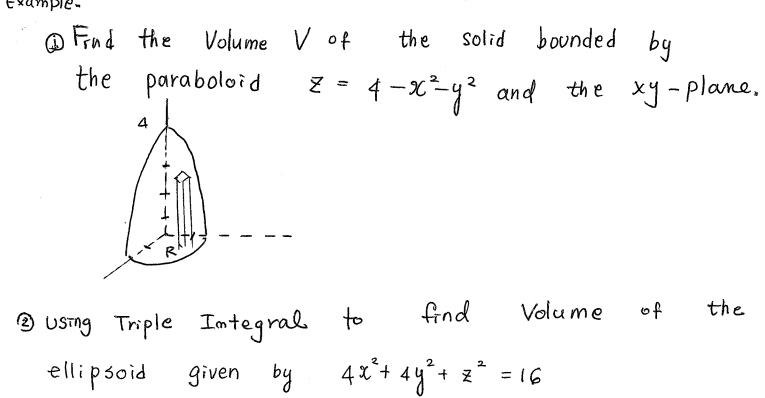 Example.
① Find the Volume V of the solid bounded by
the paraboloid z = 4 - x² - y² and the xy-plane.
4
R
② Using Triple Integral to find Volume of the
ellipsoid given by 4x² + 4y² + z² = 16